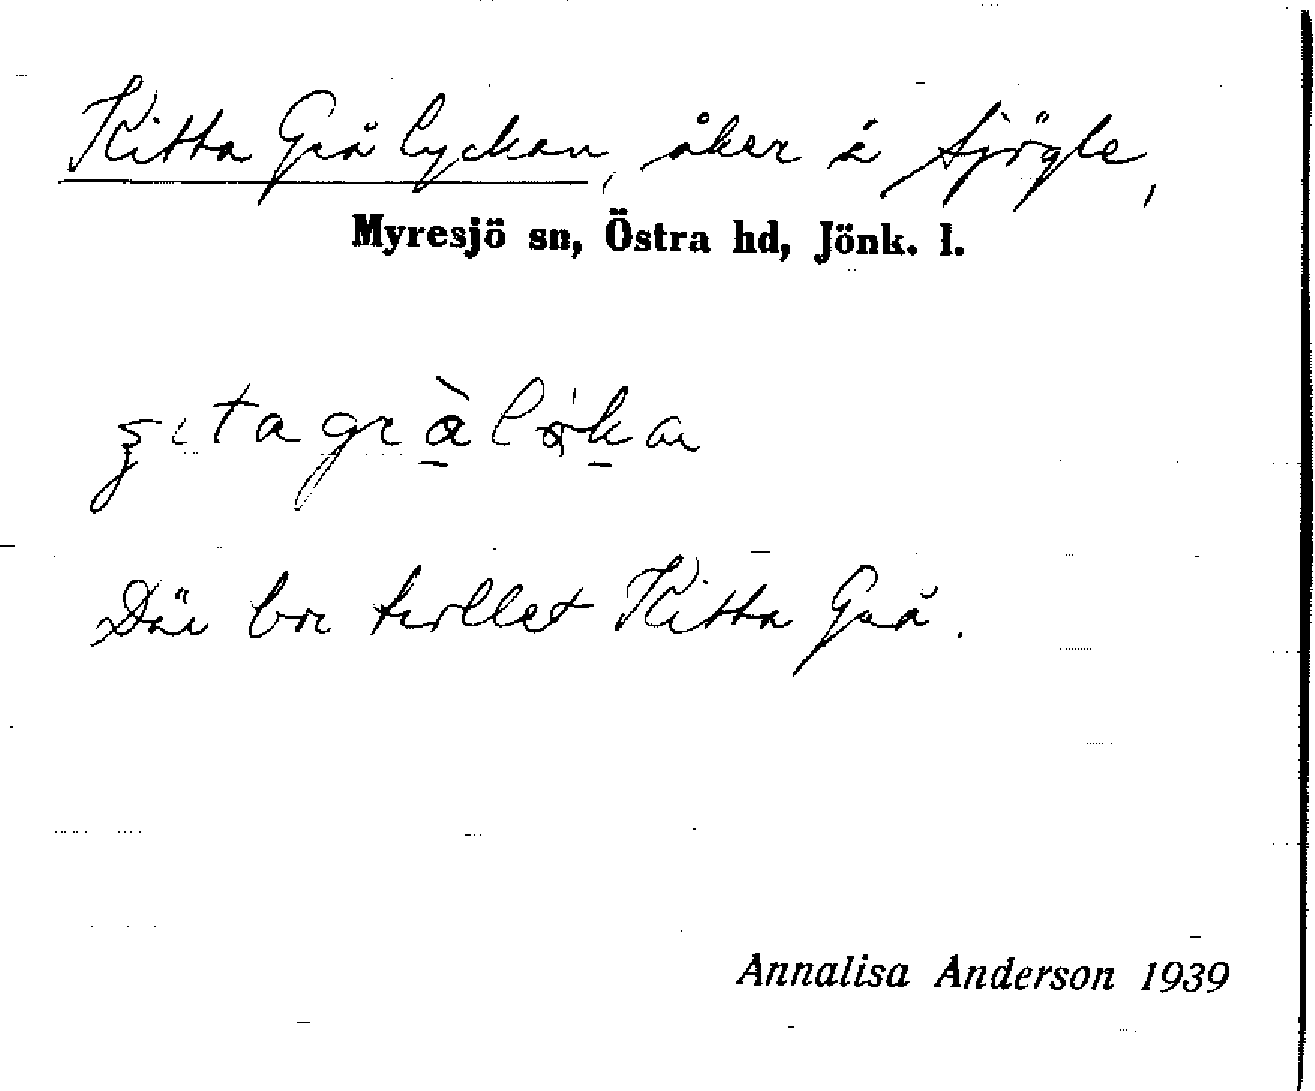 Kitta Grå lyckan, åker å Fjögle,
Myresjö sn, Östra hd, Jönk. l.
Där bor trollet Kitta Grå.
Annalisa Anderson 1939